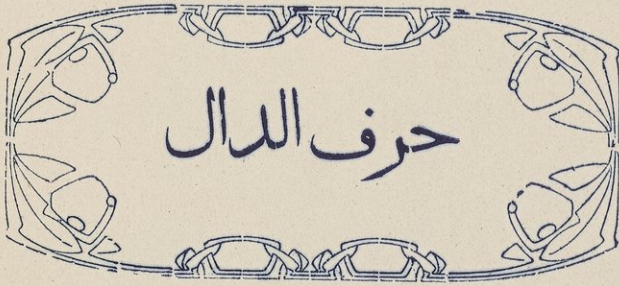 حرف الدال